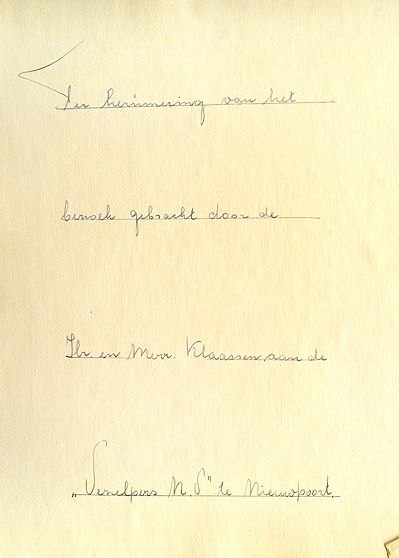 Ter herinnering van het
bezoek gebracht door de
Hr. en Mevr. Klaassen aan de
"Snelpers N.V" te Nieuwpoort.